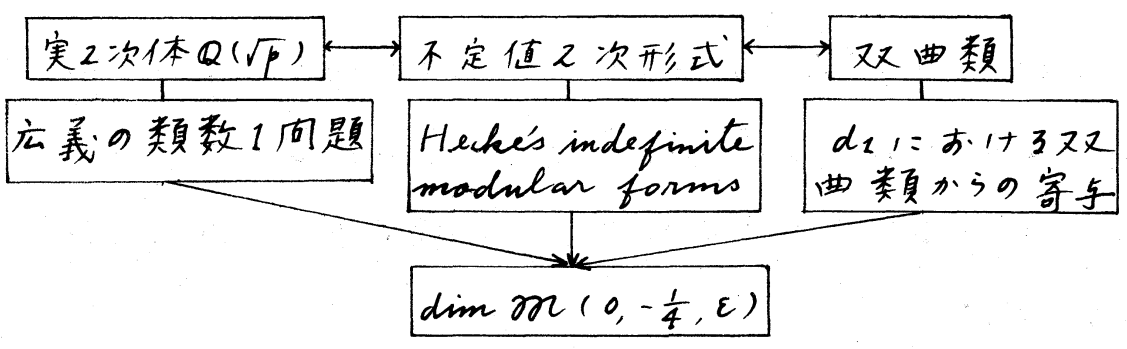 実2次体Q(√p)
不定値2次形式
双曲類
広義の類数1問題
Hecke's indefinite
modular forms
d1における双
曲類からの寄与
dim 𝔐(0, -1/4, ε)